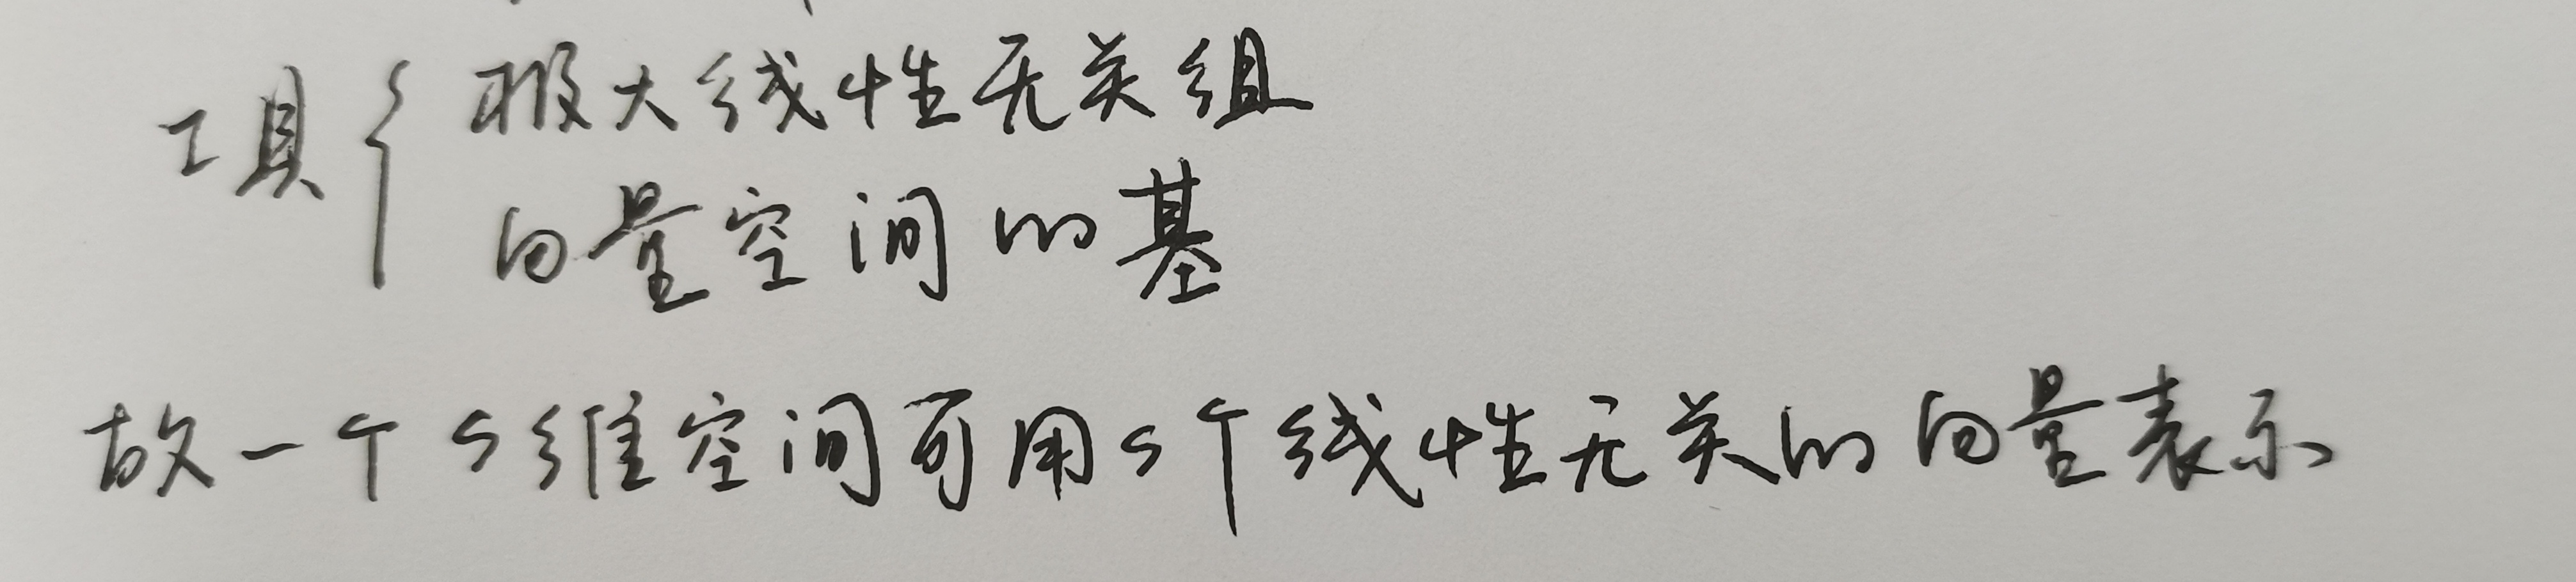 工具{极大线性无关组
向量空间的基
故一个s维空间可用s个线性无关的向量表示